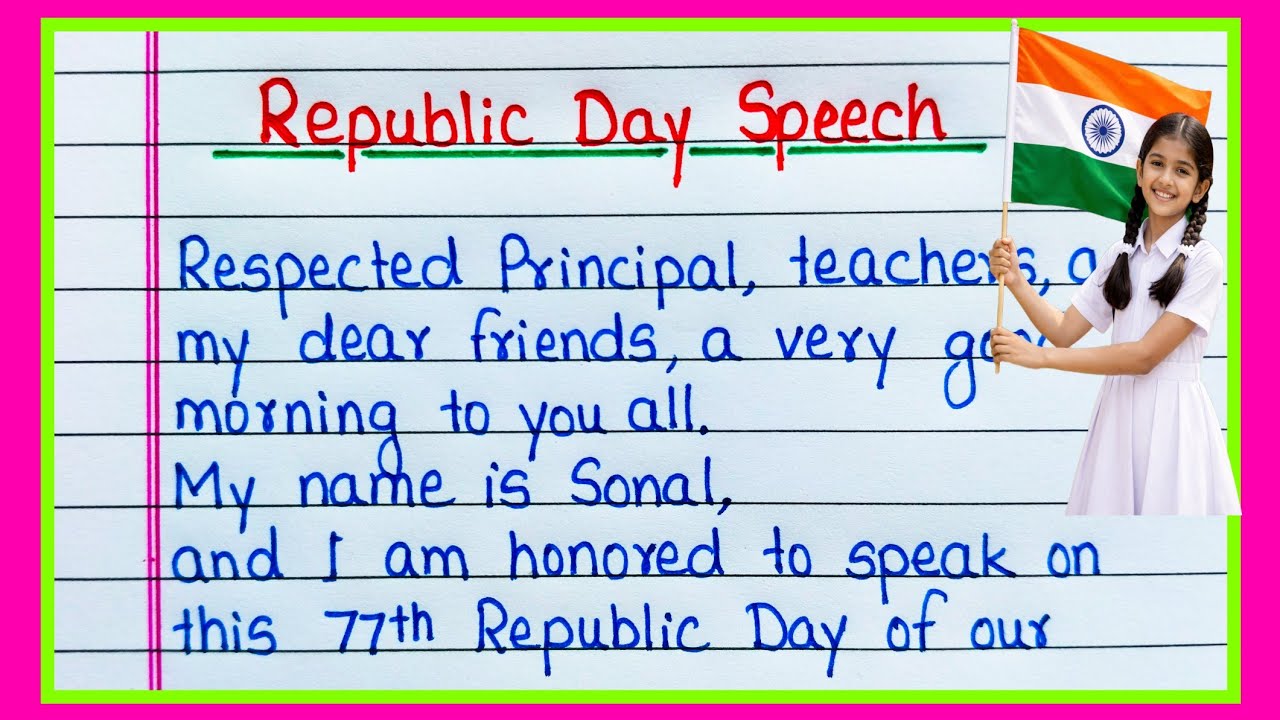 Republic Day Speech
Respected Principal, teachers, a
my dear friends, a very
morning to you all.
My name is Sonal,
and I am honored to speak on
this 77th Republic Day of our